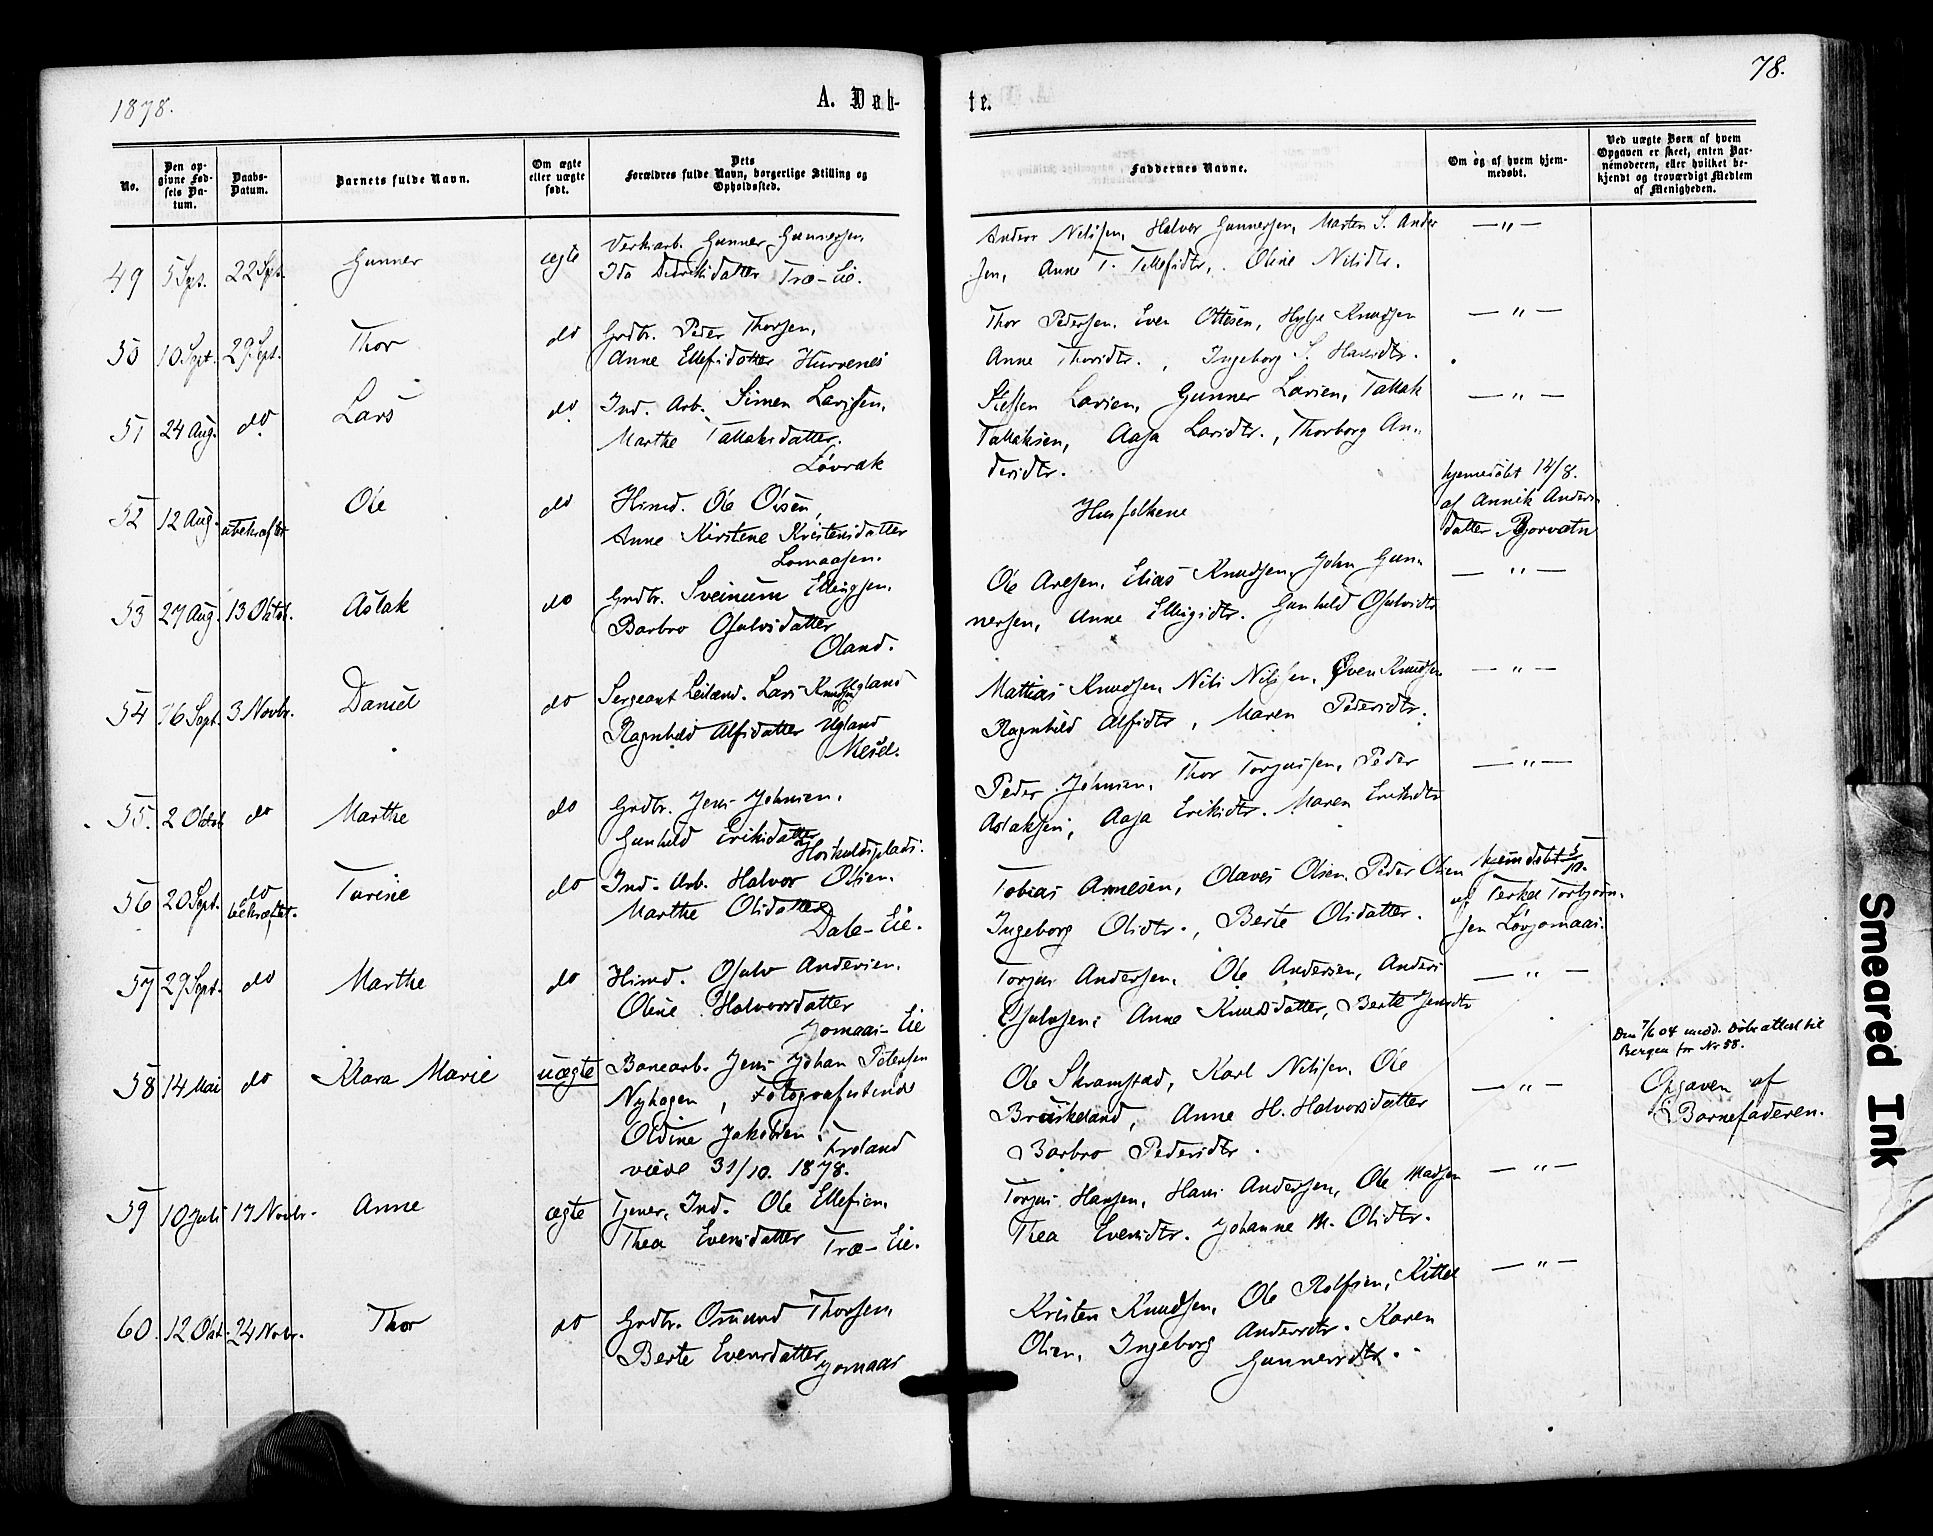 1878.
A. Døb-
te.
78.
No.
Den op-
givne Fød-
sels Da-
tum.
Daabs-
Datum.
Barnets fulde Navn.
Om ægte
eller uægte
født.
Dets
Forældres fulde Navn, borgerlige Stilling og
Opholdssted.
Faddernes Navne.
Om og af hvem hjem-
medøbt.
Ved uægte Børn af hvem
Opgaven er skeet, enten Bar-
nemoderen, eller hvilket be-
kjendt og troværdigt Medlem
af Menigheden.
49 5 Sept. 22 Sept. Gunner ægte
Verksarb. Gunner Gunnersen,
Ida Didriksdatter Træ-Eie.
Anders Nilssen, Halvor Gunnersen, Morten S. Ander
sen, Anne T. Tellefsdtr., Oline Nilsdtr.
— " —
50 10 Sept. 29 Sept. Thor do
Grdbr. Peder Thorsen,
Anne Ellefsdatter Hurvenes
Thor Pedersen, Even Ottesen, Knudsen
Anne Thorsdtr., Ingeborg S. Hansdtr.
— " —
51 24 Aug. do Lars do
Ind. Arb. Simen Larssen,
Marthe Tallaksdatter.
Løvrak
Steffen Larsen, Gunner Larsen, Tallak
Tallaksen, Aasa Larsdtr., Thorborg An-
dersdtr.
— " —
52 12 Aug. ubekræftet Ole do
Hmd. Ole Olsen,
Anne Kirstene Kristensdatter
Lomaasen.
Husfolkene
hjemedøbt 14/8.
af Annik Anders-
datter Bjorvatn
53 27 Aug. 13 Oktob. Aslak do
Grdbr. Sveinum Ellingsen,
Barbro Osulvsdatter
Oland.
Ole Aresen, Elias Knudsen, John Gun-
nersen, Anne Ellingsdtr. Gunhild Osulvsdtr
— " —
54 16 Sept. 3 Novbr. Daniel do
Sergeant Leilænd. Lars Knudsen Ugland
Ragnhild Alfsdatter Ugland
Mesel.
Mathias Knudsen, Nils Nilssen, Sven Knudsen
Ragnhild Alfsdtr, Maren Pedersdtr.
— " —
55. 2 Oktob do Marthe do
Grdbr. Jens Johnsen,
Gunhild Eriksdatter
Hoskuldsplads.
Peder Johnsen, Thor Torjussen, Peder
Aslaksen, Aasa Eriksdtr. Maren Eriksdtr
— " —
56 20 Sept. do
bekræftet. Torine do
Ind. Arb. Halvor Olsen.
Marthe Olsdatter
Dale-Eie.
Tobias Arnesen, Olaves Olsen, Peder Olsen
Ingeborg Olsdtr., Berte Olsdatter.
hjemdøbt 5/10.
af Terkel Torbjørn-
sen Løvjomaas.
57 29 Sept. do Marthe do
Hmd. Osulv Andersen.
Oline Halvorsdatter
Jomaas-Eie
Torjus Andersen, Ole Andersen, Anders
Osulvsen, Anne Knudsdatter, Berte Jensdtr
— " —
Den 7/6 04 medd. Døbeattest til
Bergen for Nr 58.
58 14 Mai do Klara Marie uægte
Banearb. Jens Johan Petersen
Nyhagen, Fotograferinde
Oldine Jakobsen,
Froland
viede 31/10. 1878.
Ole Skramstad, Karl Nilssen, Ole
Bruskeland, Anne H. Halvorsdatter
Barbro Pedersdtr.
— " —
Opgaven af
Barnefaderen.
59 10 Juli 17 Novbr. Anne ægte
Tjener, Ind. Ole Ellefsen,
Thea Evensdatter Træ-Eie.
Torjus Hansen, Hans Andersen, Ole Madsen
Thea Evensdtr. Johanne M. Olsdtr.
— " —
60. 12 Okt. 24 Novbr. Thor do
Grdbr. Osmund Thorsen,
Berte Evensdatter Jomaas
Kristen Knudsen, Ole Rolfsen, Kittel
Olsen, Ingeborg Andersdtr. Karen
Gunnersdtr.
— " —
Smeared Ink